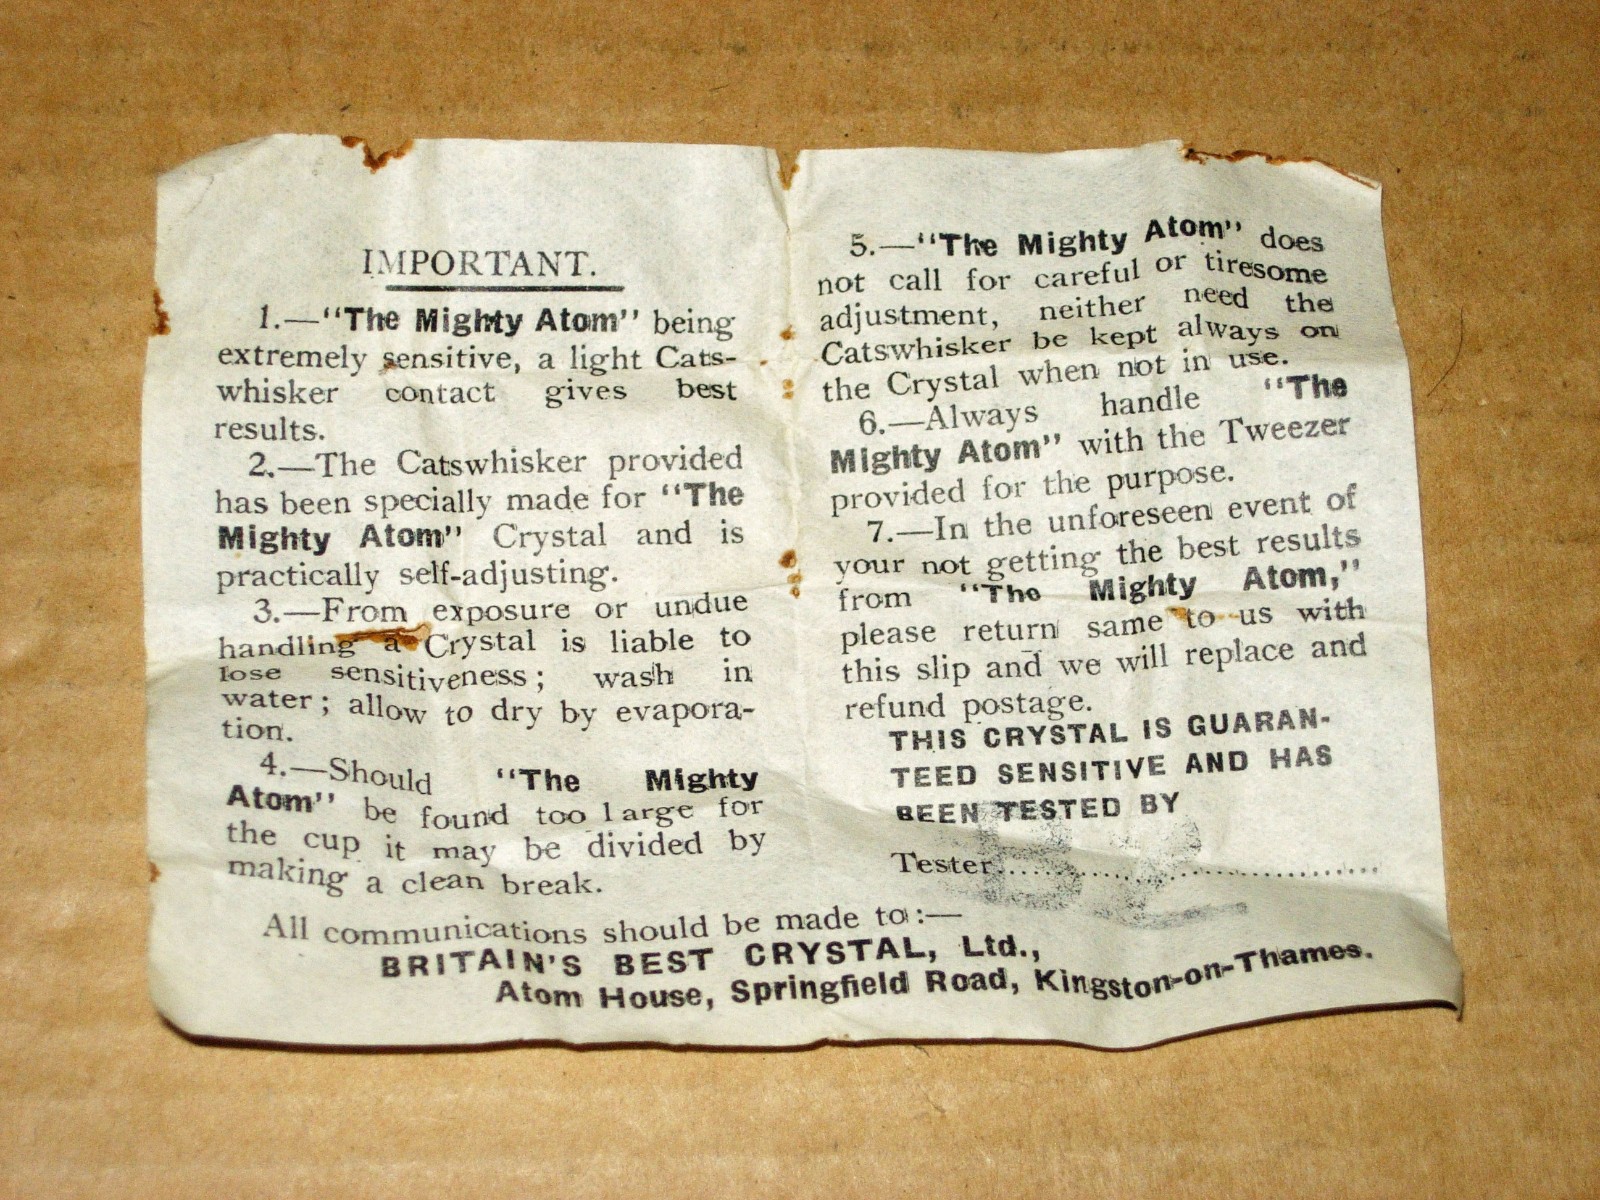 IMPORTANT.
1.—"The Mighty Atom" being
extremely sensitive, a light Cats-
whisker contact gives best
results.
2.—The Catswhisker provided
has been specially made for "The
Mighty Atom" Crystal and is
practically self-adjusting.
3.—From exposure or undue
handling a Crystal is liable to
lose sensitiveness; wash in
water; allow to dry by evapora-
tion.
4.—Should "The Mighty
Atom" be found too large for
the cup it may be divided by
making a clean break.
5.—"The Mighty Atom" does
not call for careful or tiresome
adjustment, neither need the
Catswhisker be kept always on
the Crystal when not in use.
6.—Always handle "The
Mighty Atom" with the Tweezer
provided for the purpose.
7.—In the unforeseen event of
your not getting the best results
from "The Mighty Atom,"
please return same to us with
this slip and we will replace and
refund postage.
THIS CRYSTAL IS GUARAN-
TEED SENSITIVE AND HAS
BEEN TESTED BY
Tester..............................
All communications should be made to:—
BRITAIN'S BEST CRYSTAL, Ltd.,
Atom House, Springfield Road, Kingston-on-Thames.